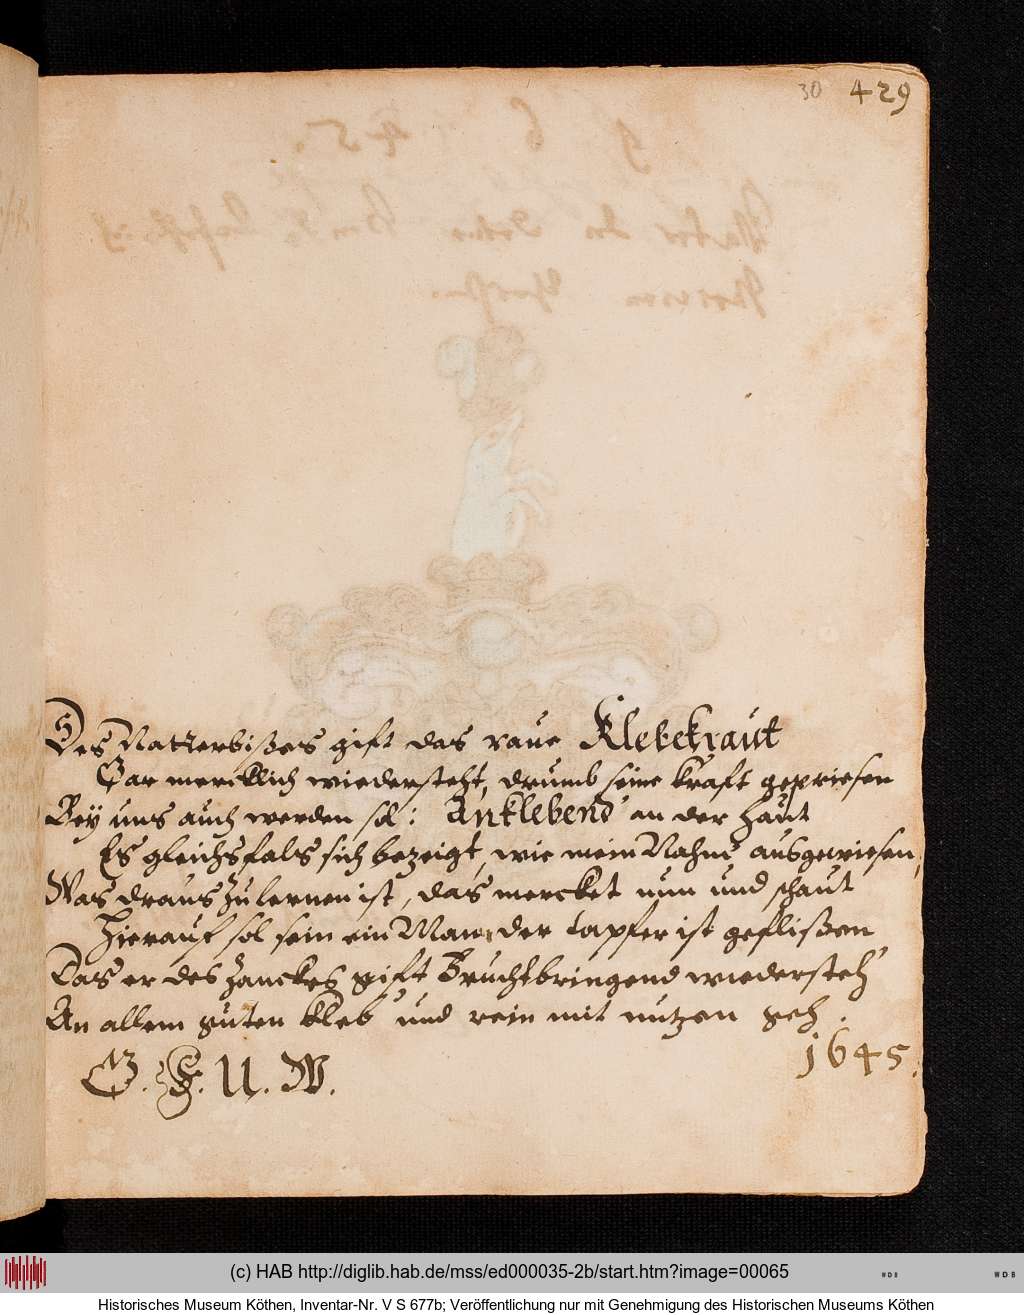 30 429
Des Natterbißes gift das raue Klebekraut
Gar mercklich wiedersteht, drumb seine kraft gepriesen
Bey uns auch werden sol: Anklebend' an der Haut
Es gleichsfals sich bezeigt, wie mein Nahm' ausgewiesen,
Was draus zu lernen ist, das mercket nun und schaut
Hierauf sol sein ein Man der tapfer ist geflißen
Das er des Zanckes gift Fruchtbringend wiedersteh'
An allem guten kleb' und rein mit nutzen geh.
G. H. U. W.
1645.
(c) HAB http://diglib.hab.de/mss/ed000035-2b/start.htm?image=00065
WDB
WDB
Historisches Museum Köthen, Inventar-Nr. V S 677b; Veröffentlichung nur mit Genehmigung des Historischen Museums Köthen